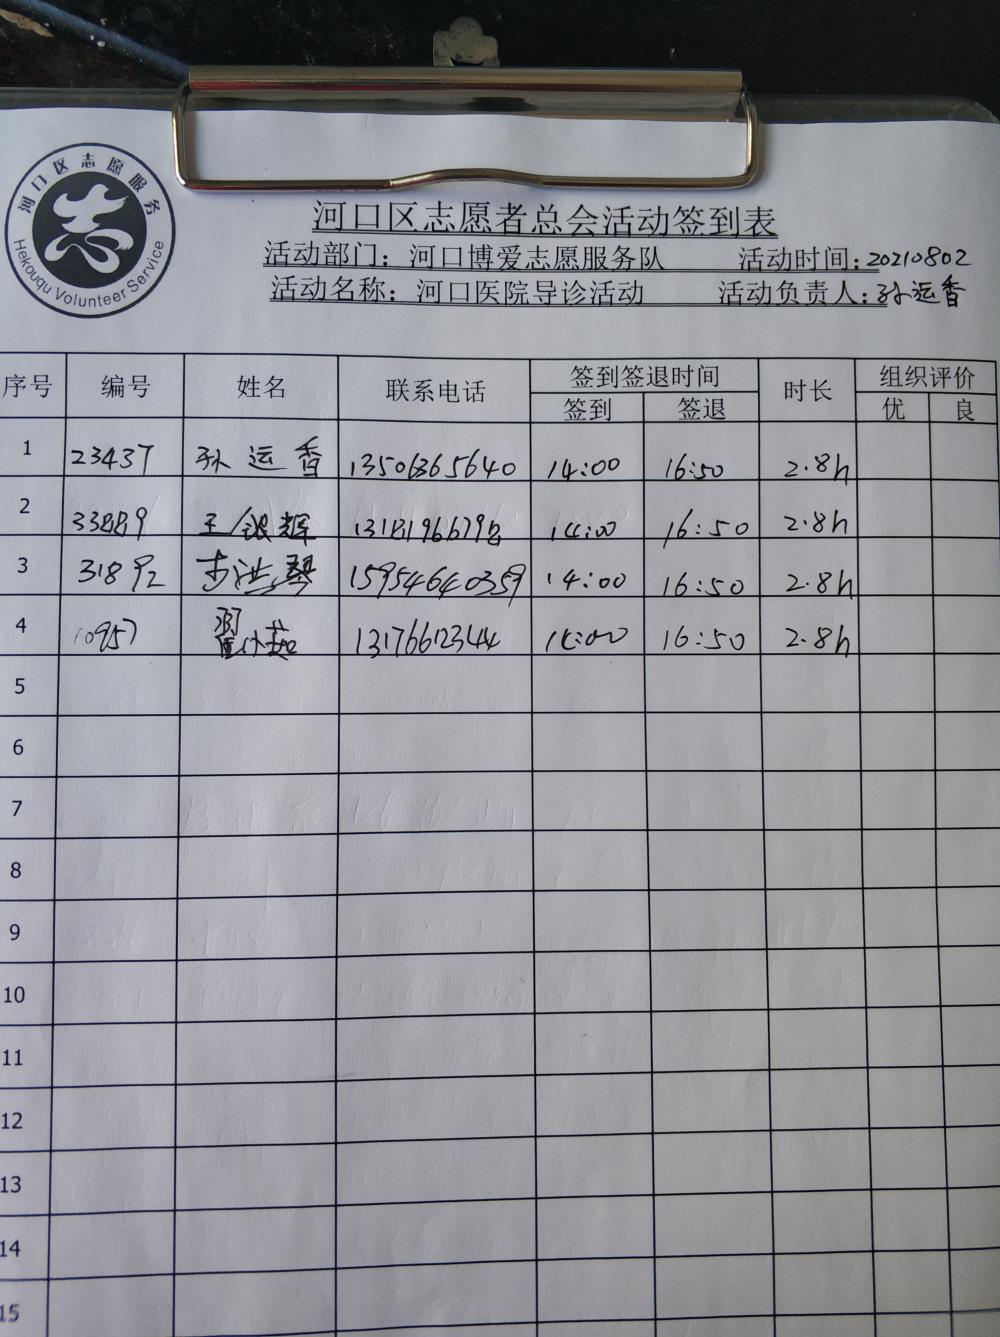 河口区志愿服务
志
Hekouqu Volunteer Service
河口区志愿者总会活动签到表
活动部门：河口博爱志愿服务队 活动时间：20210802
活动名称：河口医院导诊活动 活动负责人：孙运香
序号 编号 姓名 联系电话 签到签退时间 时长 组织评价
签到 签退 优 良
1 23437 孙运香 13506365640 14:00 16:50 2.8h
2 33889 王银辉 14:00 16:50 2.8h
3 31892 15954640359 14:00 16:50 2.8h
4 10957 13176612344 14:00 16:50 2.8h
5
6
7
8
9
10
11
12
13
14
15